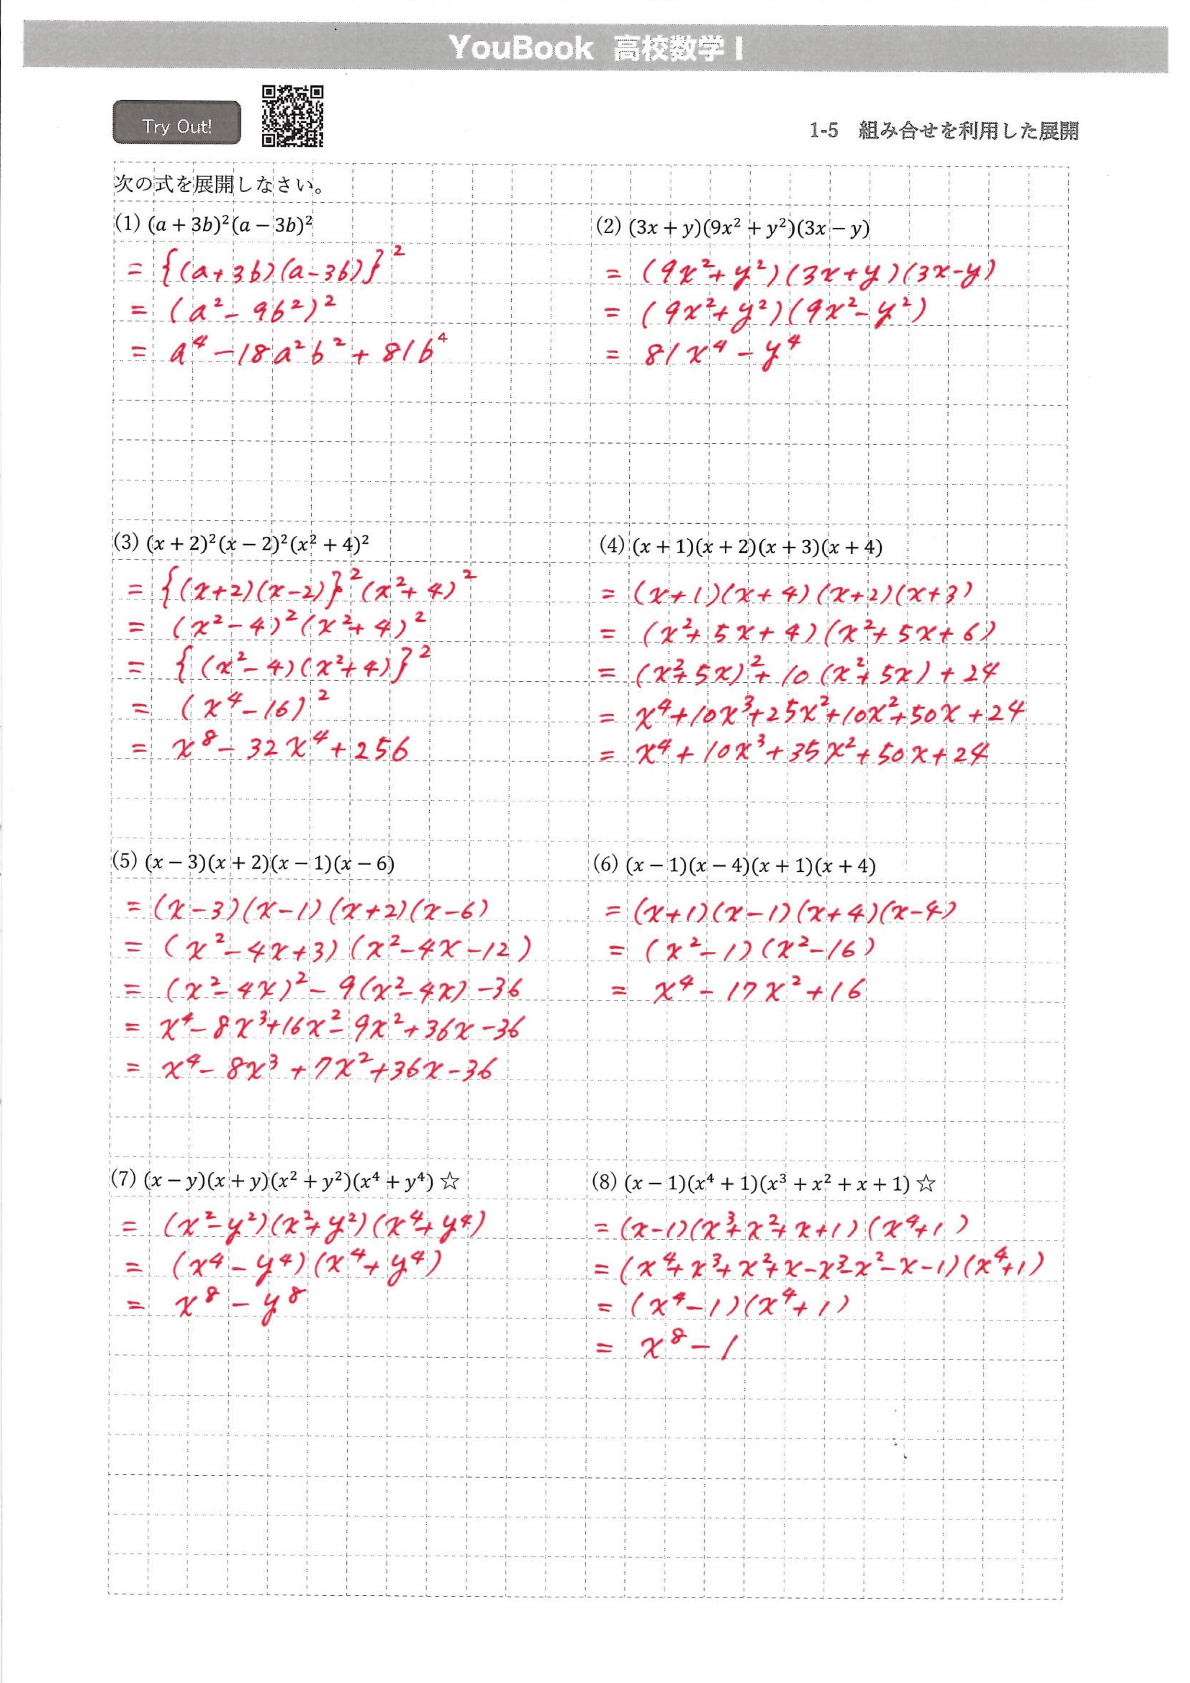 YouBook 高校数学 I
Try Out!
1-5 組み合せを利用した展開
次の式を展開しなさい。
(1) (a + 3b)²(a − 3b)²
= {(a+3b)(a-3b)}²
= (a² - 9b²)²
= a⁴ - 18a²b² + 81b⁴
(2) (3x + y)(9x² + y²)(3x − y)
= (9x²+y²)(3x+y)(3x-y)
= (9x²+y²)(9x²-y²)
= 81x⁴ - y⁴
(3) (x + 2)²(x − 2)²(x² + 4)²
= {(x+2)(x-2)}²(x²+4)²
= (x²-4)²(x²+4)²
= {(x²-4)(x²+4)}²
= (x⁴-16)²
= x⁸ - 32x⁴ + 256
(4) (x + 1)(x + 2)(x + 3)(x + 4)
= (x+1)(x+4)(x+2)(x+3)
= (x²+5x+4)(x²+5x+6)
= (x²+5x)²+10(x²+5x)+24
= x⁴+10x³+25x²+10x²+50x+24
= x⁴+10x³+35x²+50x+24
(5) (x − 3)(x + 2)(x − 1)(x − 6)
= (x-3)(x-1)(x+2)(x-6)
= (x²-4x+3)(x²-4x-12)
= (x²-4x)²-9(x²-4x)-36
= x⁴-8x³+16x²-9x²+36x-36
= x⁴-8x³+7x²+36x-36
(6) (x − 1)(x − 4)(x + 1)(x + 4)
= (x+1)(x-1)(x+4)(x-4)
= (x²-1)(x²-16)
= x⁴-17x²+16
(7) (x − y)(x + y)(x² + y²)(x⁴ + y⁴) ☆
= (x²-y²)(x²+y²)(x⁴+y⁴)
= (x⁴-y⁴)(x⁴+y⁴)
= x⁸-y⁸
(8) (x − 1)(x⁴ + 1)(x³ + x² + x + 1) ☆
= (x-1)(x³+x²+x+1)(x⁴+1)
= (x⁴+x³+x²+x-x³-x²-x-1)(x⁴+1)
= (x⁴-1)(x⁴+1)
= x⁸-1